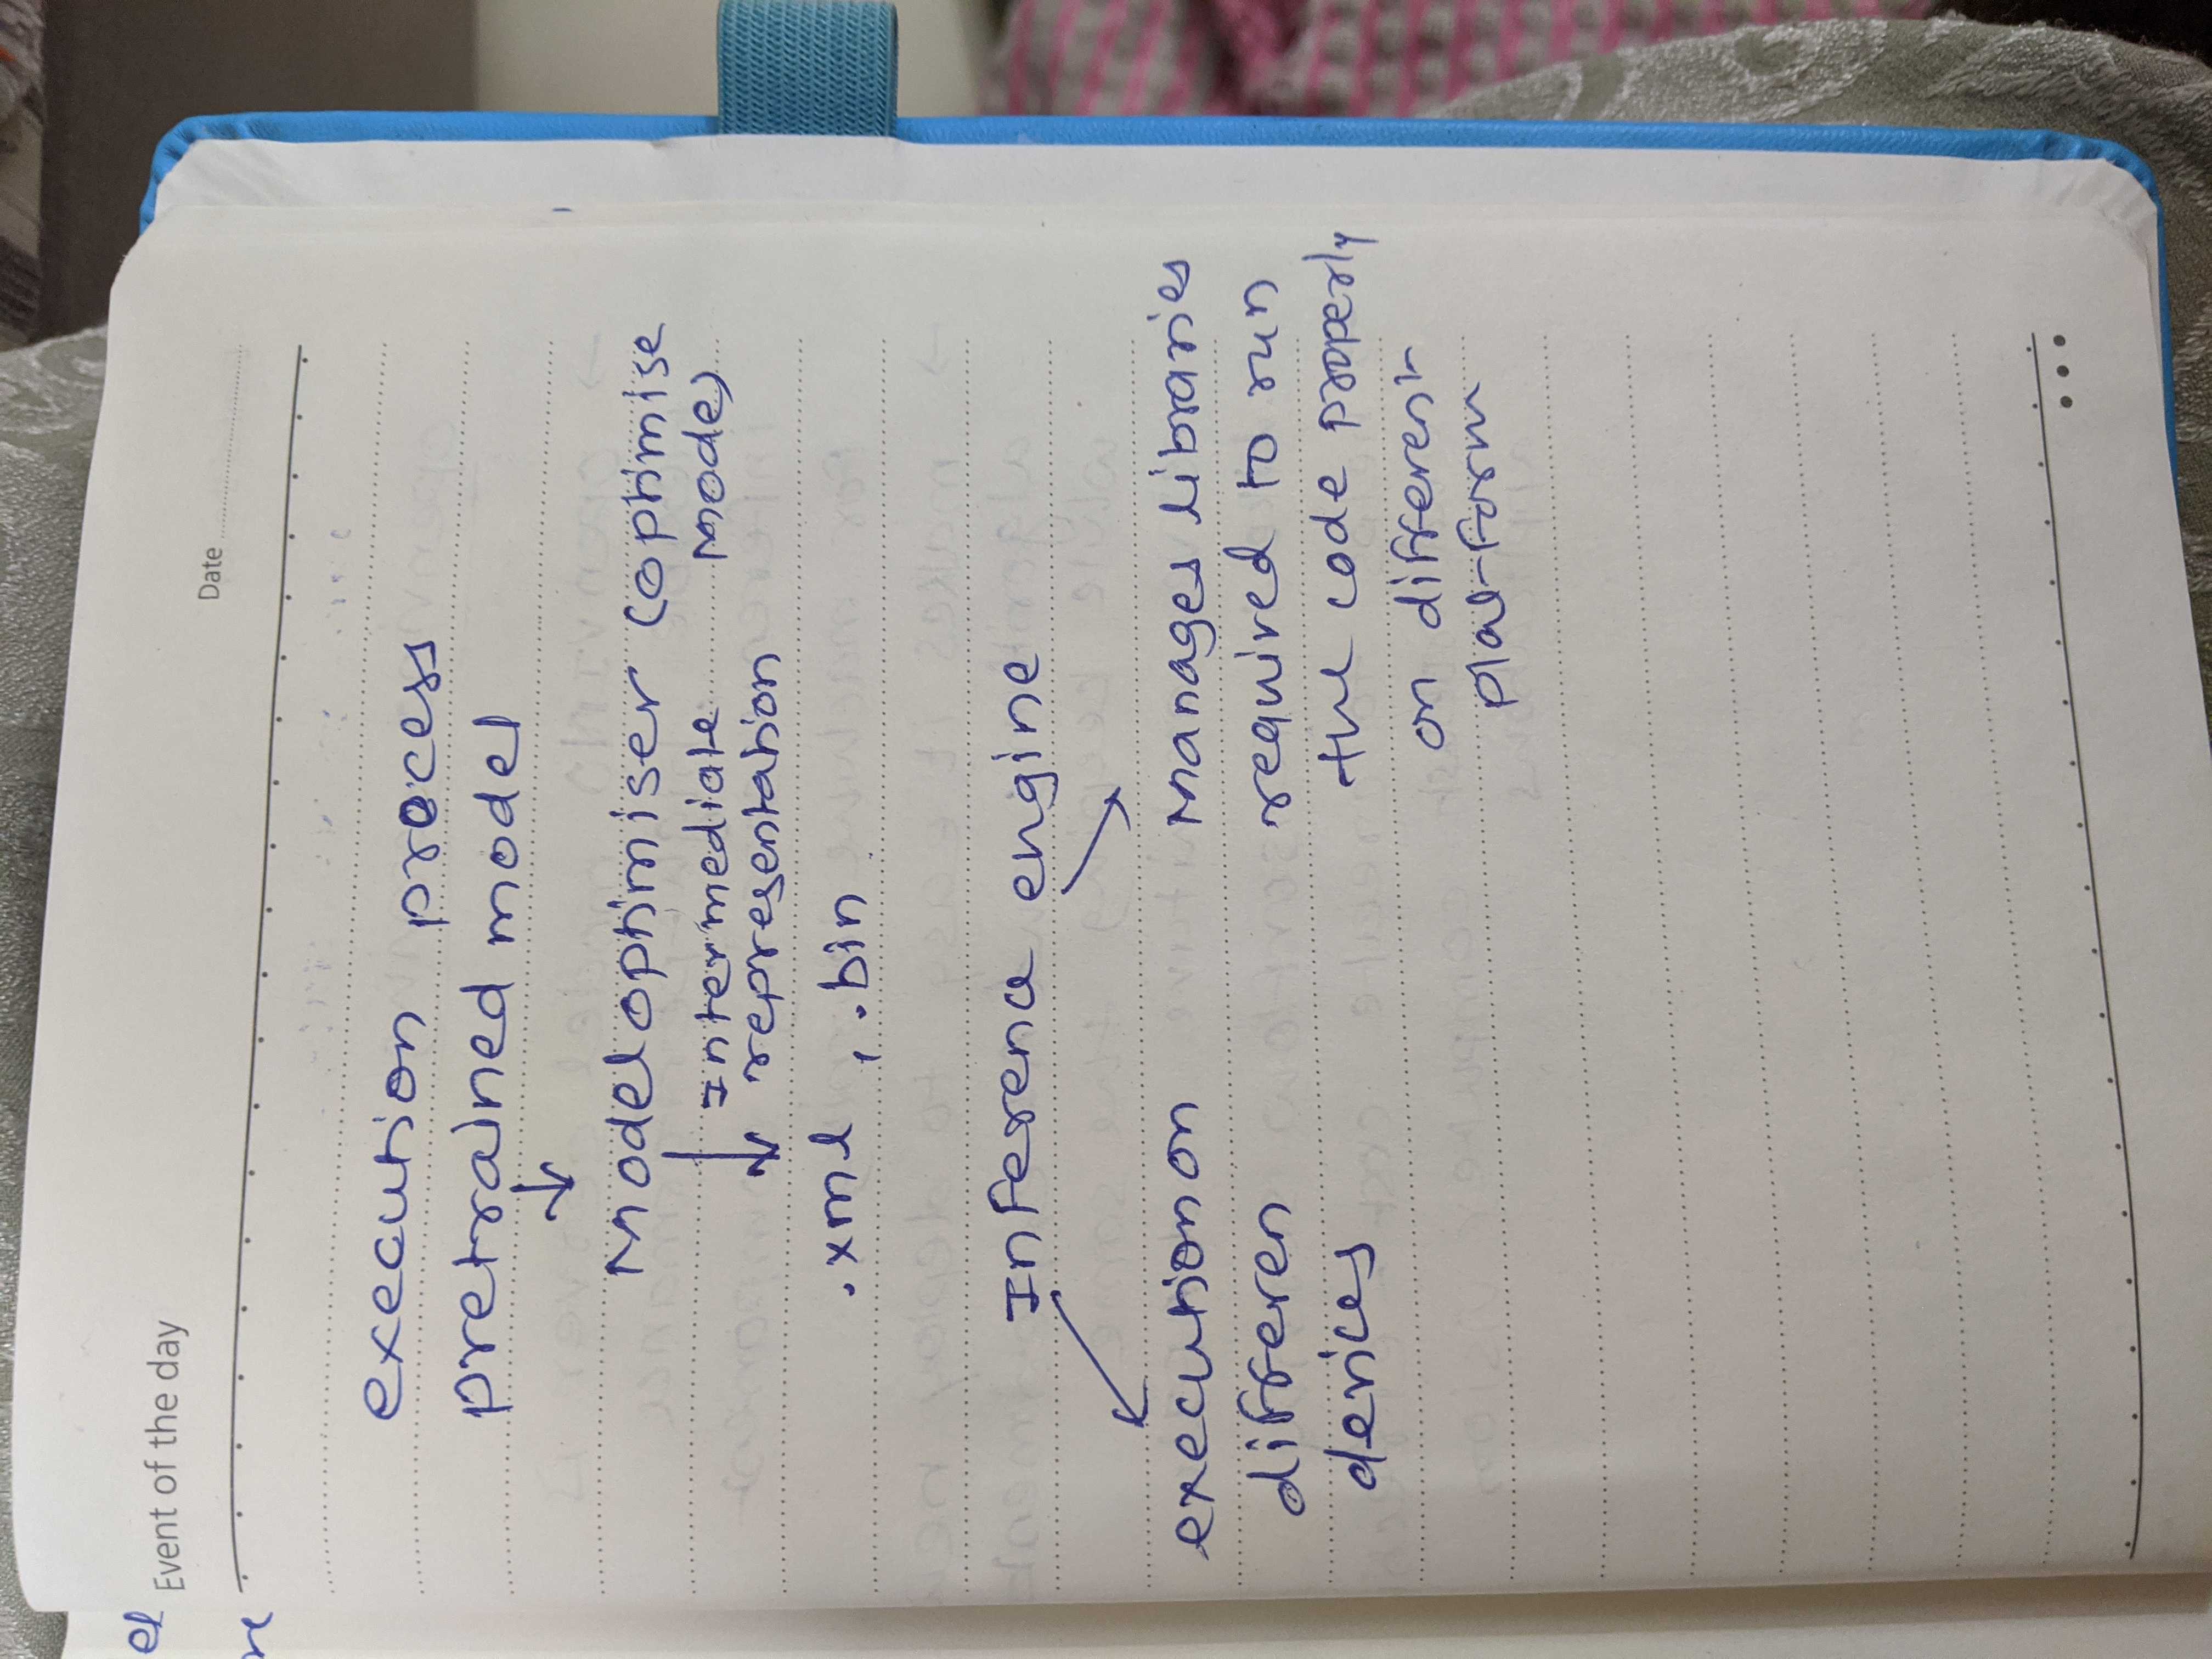 Event of the day
Date
execution process
pretrained model
↓
Model optimiser (optimise
model)
↓ Intermediate
representation
.xml, .bin
Inference engine
execution on
differen
devices
manages libraries
required to run
the code properly
on different
platform
el